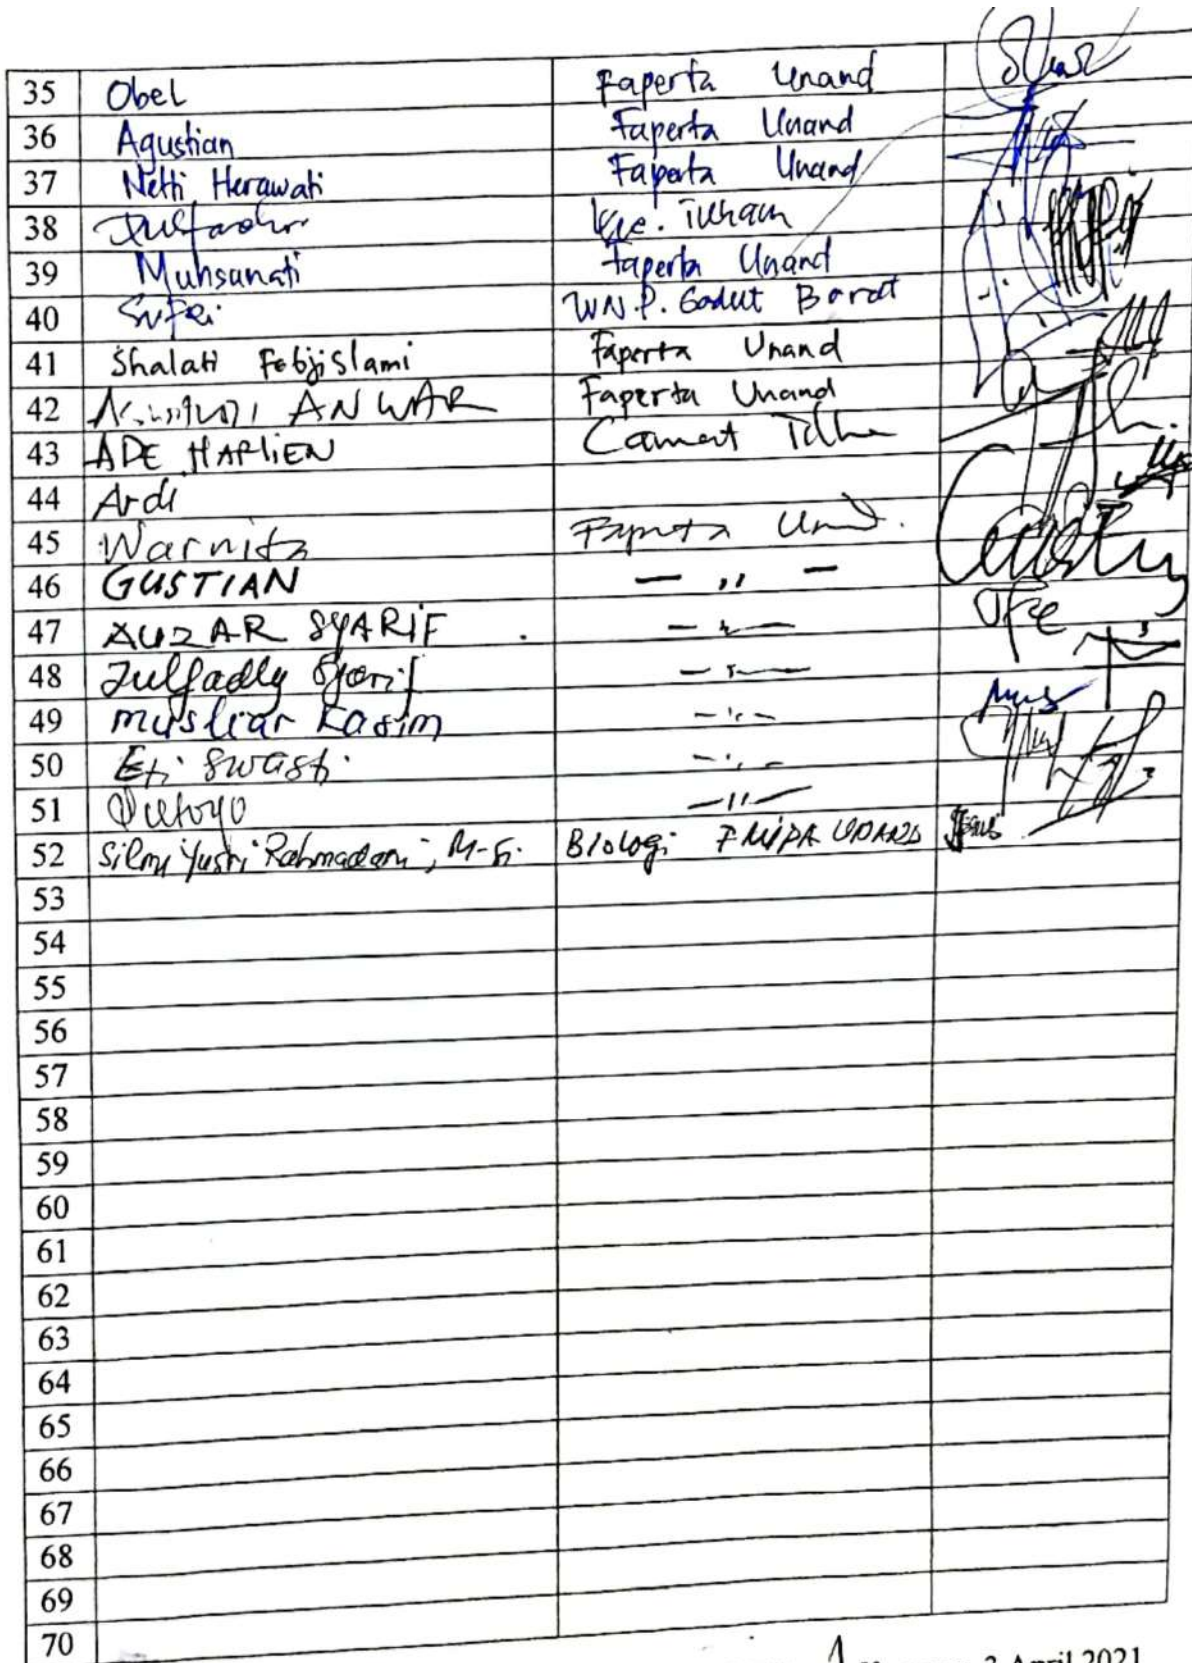 35 Obel Faperta Unand
36 Agustian Faperta Unand
37 Netti Herawati Faperta Unand
38
39 Muhsanati Faperta Unand
40 WN.P. Gadut Barat
41 Shalati Febjislami Faperta Unand
42 ANWAR Faperta Unand
43 ADE HARLIEN Camat
44 Ardi
45 Warnita Faperta Unand.
46 GUSTIAN — ,, —
47 AUZAR SYARIF — ,, —
48 Zulfadly Syarif — ,, —
49 musliar Kasim — ,, —
50 Eti Swasti — ,, —
51 — ,, —
52 Silmi Yusri Rahmadani, M.Si. Biologi FMIPA UNAND
53
54
55
56
57
58
59
60
61
62
63
64
65
66
67
68
69
70
3 April 2021